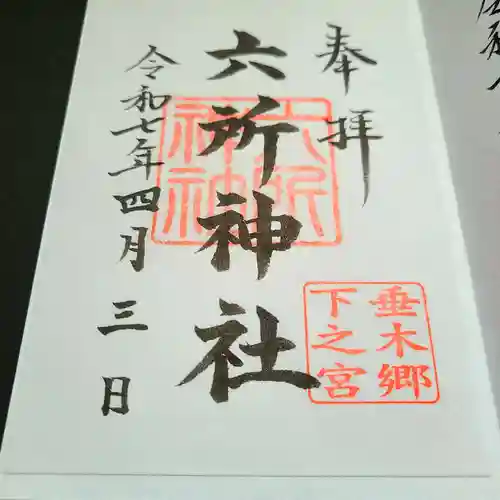 奉拝
六所神社
令和七年四月三日
六所
神社
垂木郷
下之宮